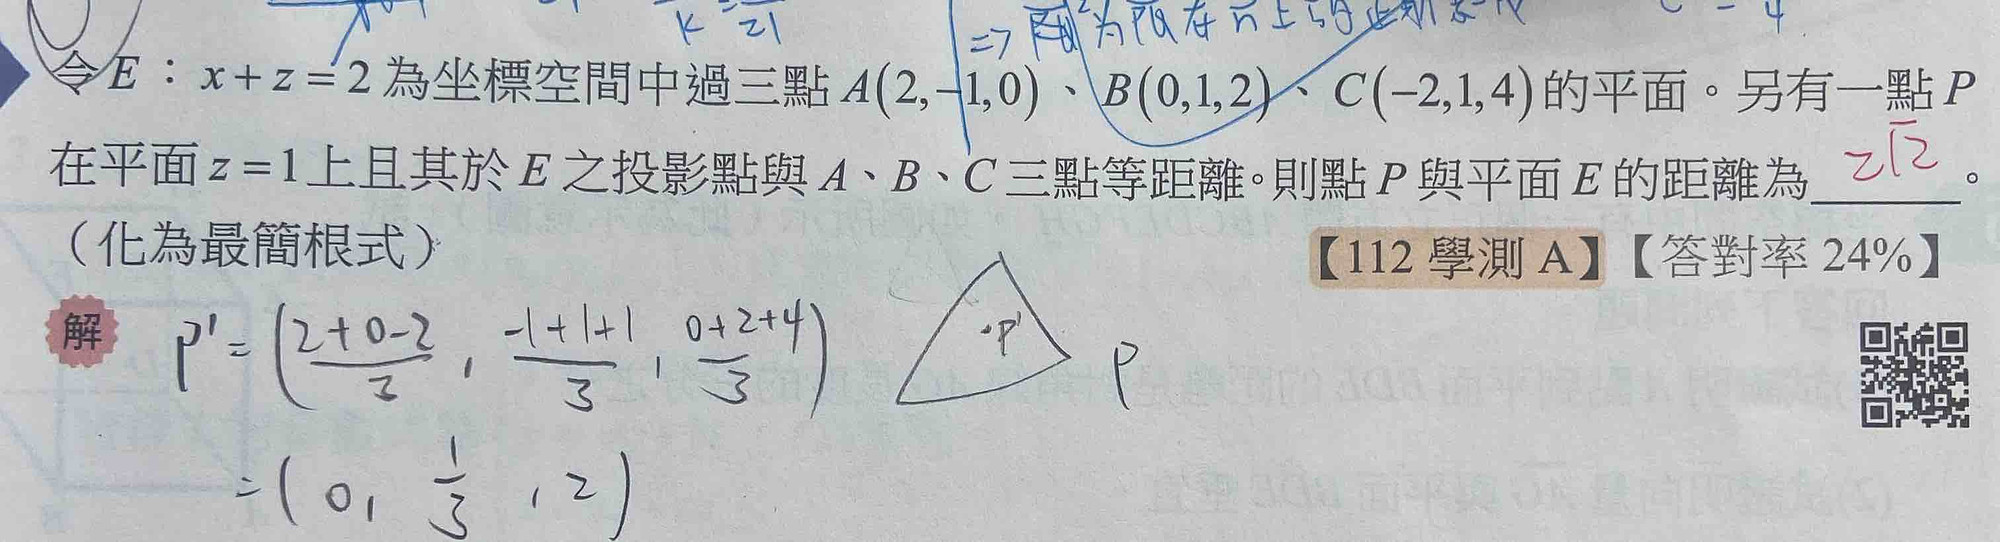 令 E：x+z=2 為坐標空間中過三點 A(2,-1,0)、B(0,1,2)、C(-2,1,4) 的平面。另有一點 P
在平面 z=1 上且其於 E 之投影點與 A、B、C 三點等距離。則點 P 與平面 E 的距離為 2√2 。
（化為最簡根式）
【112 學測 A】【答對率 24%】
解
P' = (2+0-2/3, -1+1+1/3, 0+2+4/3)
·P'
P
= (0, 1/3, 2)